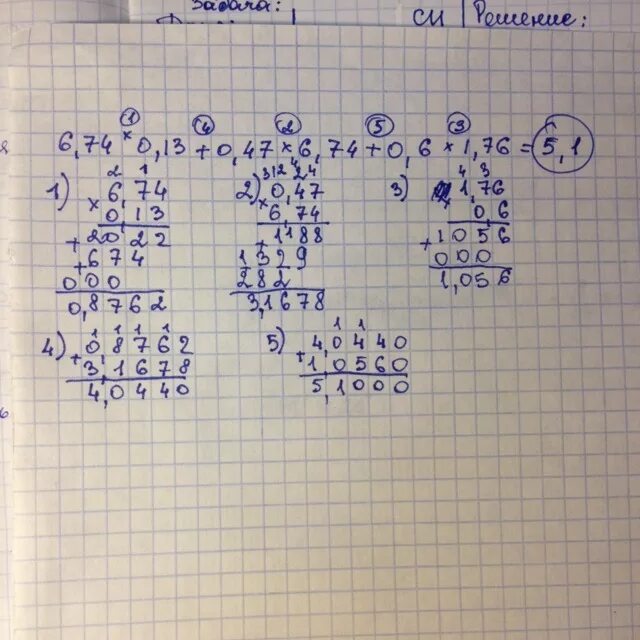 Задача:
СИ | Решение:
① ④ ② ⑤ ③
6,74 × 0,13 + 0,47 × 6,74 + 0,6 × 1,76 = 5,1
1) 2 1
6,74
× 0,13
+ 2022
+ 674
000
0,8762
2) 3 1 2 4 2 4
0,47
× 6,74
+ 1188
1329
282
3,1678
3) 4 3
1,76
0 6
+ 1056
000
1,056
4) 1 1 1 1
0 8762
+ 3,1678
4,0440
5) 1 1
4,0440
+ 1,0560
5,1000